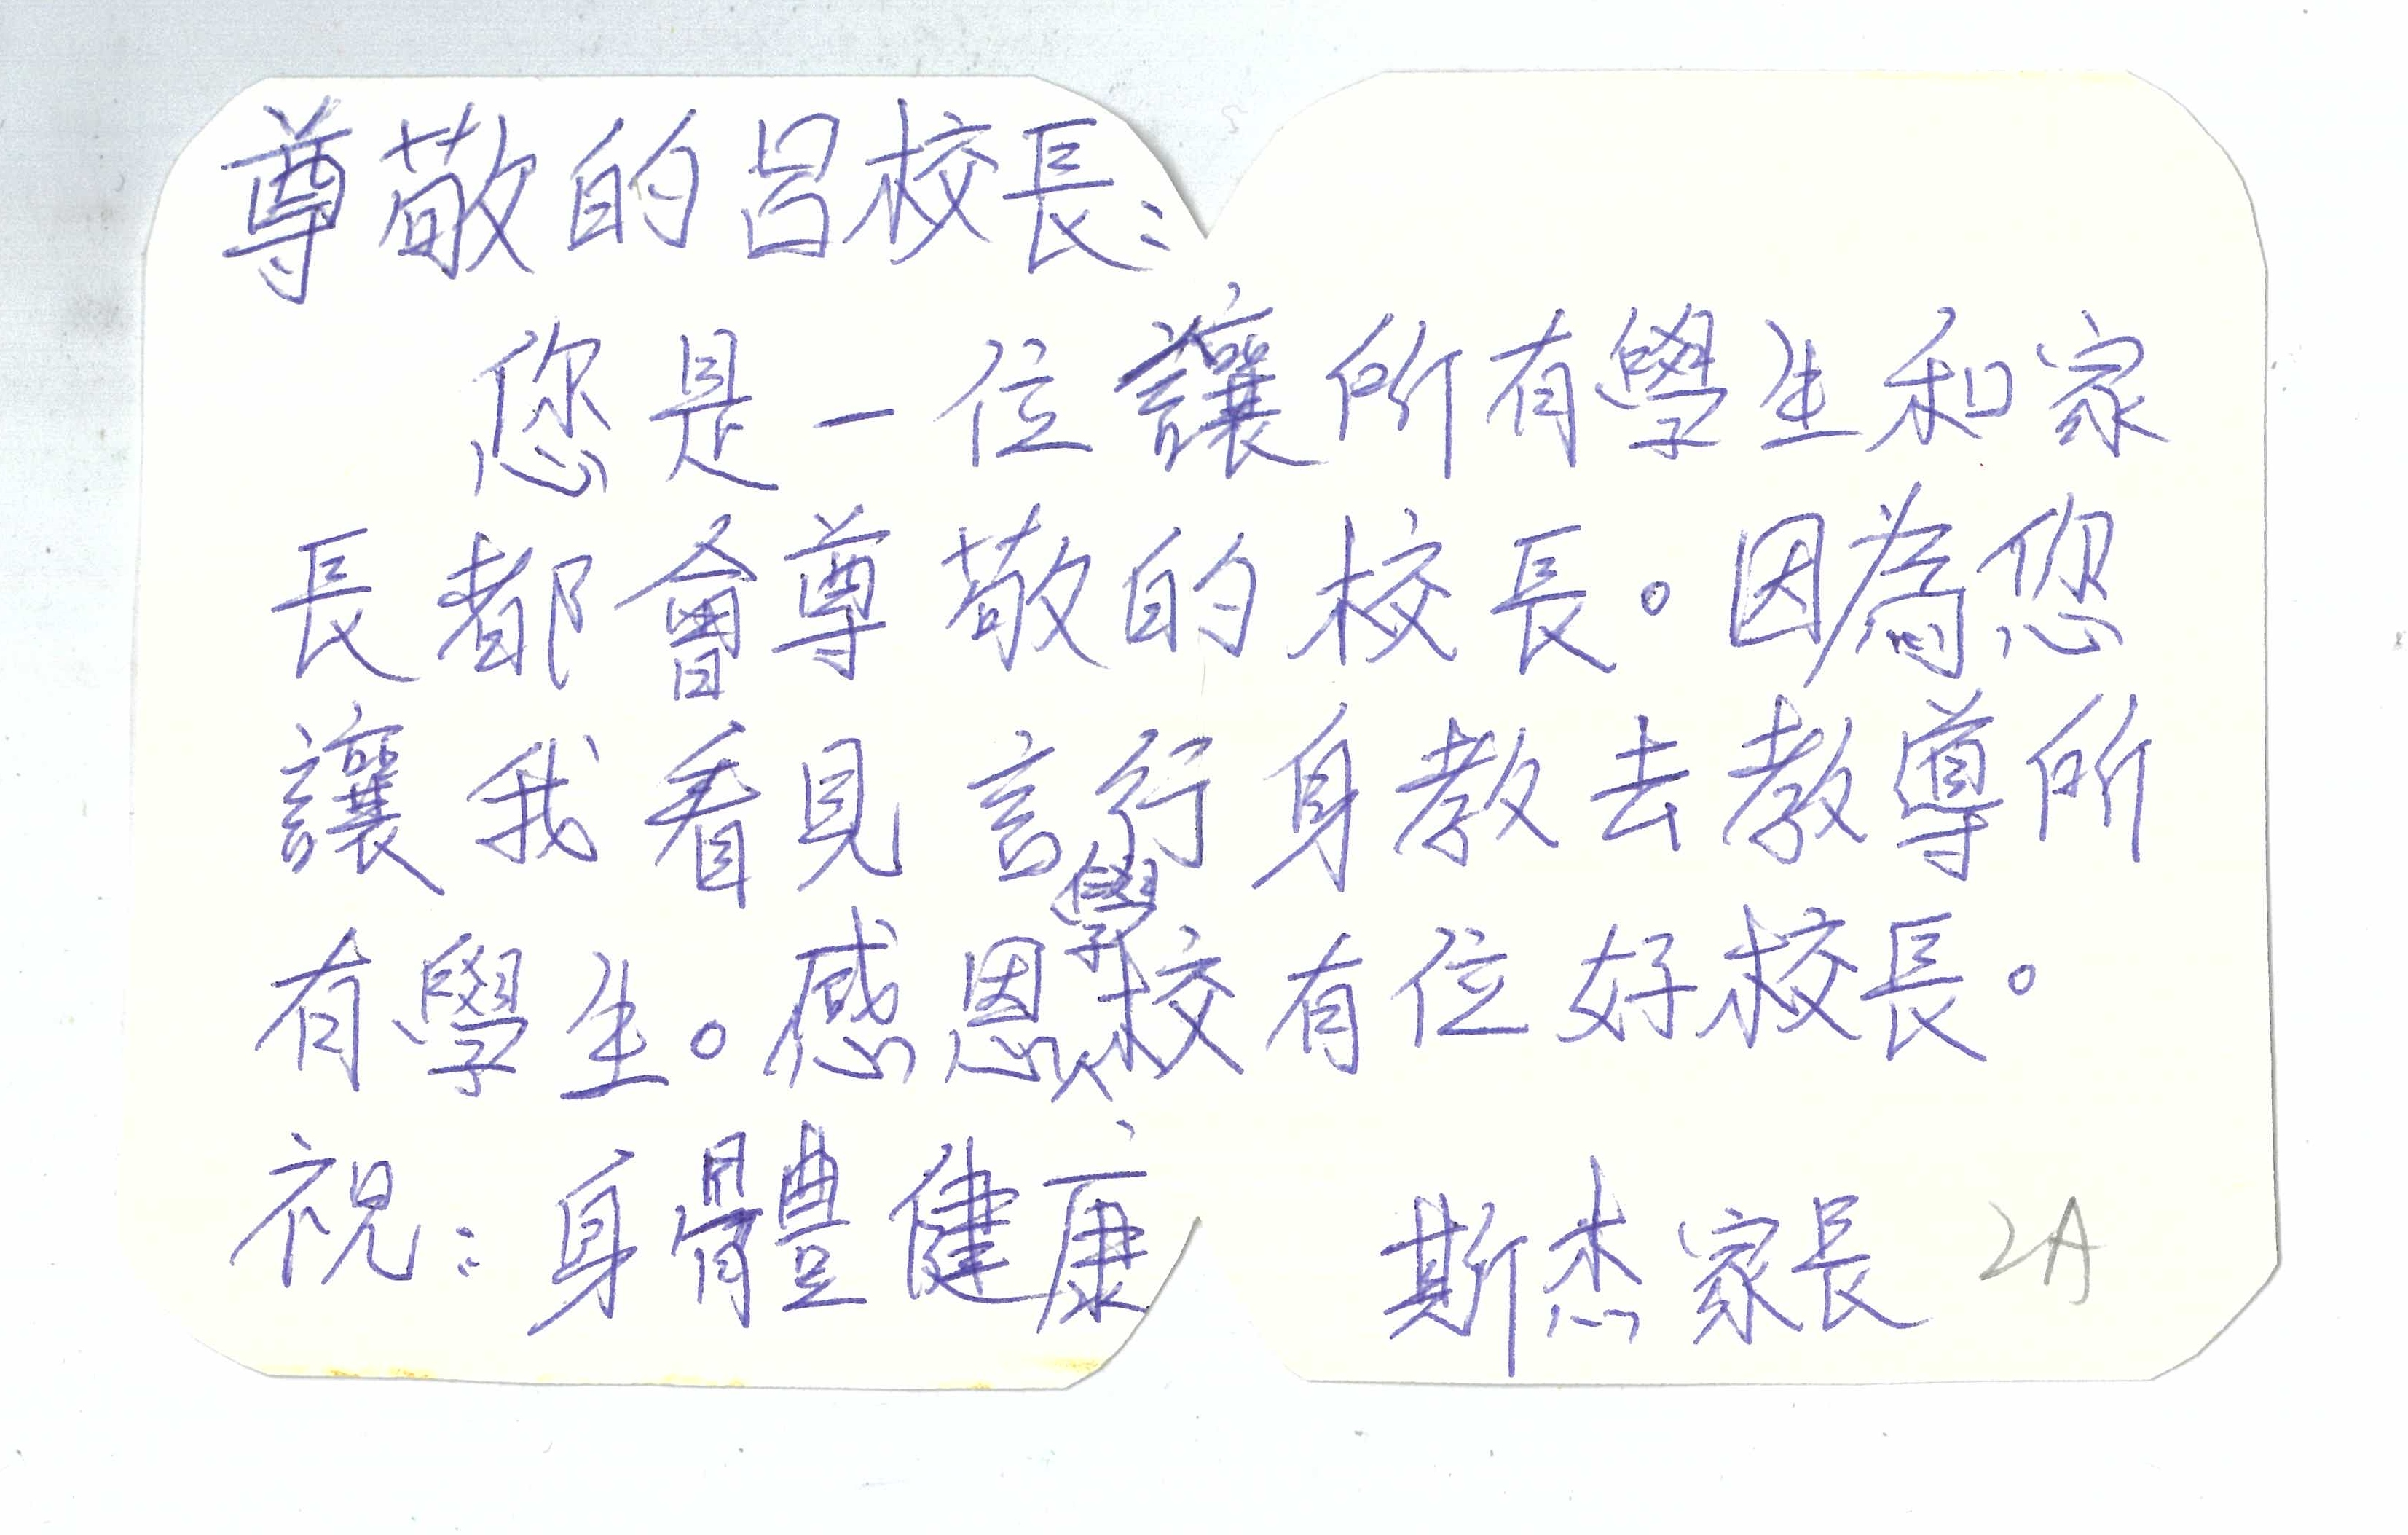 尊敬的呂校長：
您是一位讓所有學生和家
長都會尊敬的校長。因為您
讓我看見言行身教去教導所
有學生。感恩學校有位好校長。
祝：身體健康
斯杰家長 2A